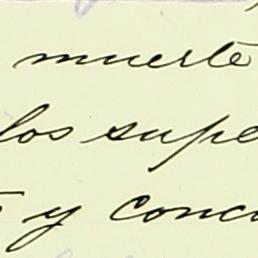 muerte
los supe
y conc